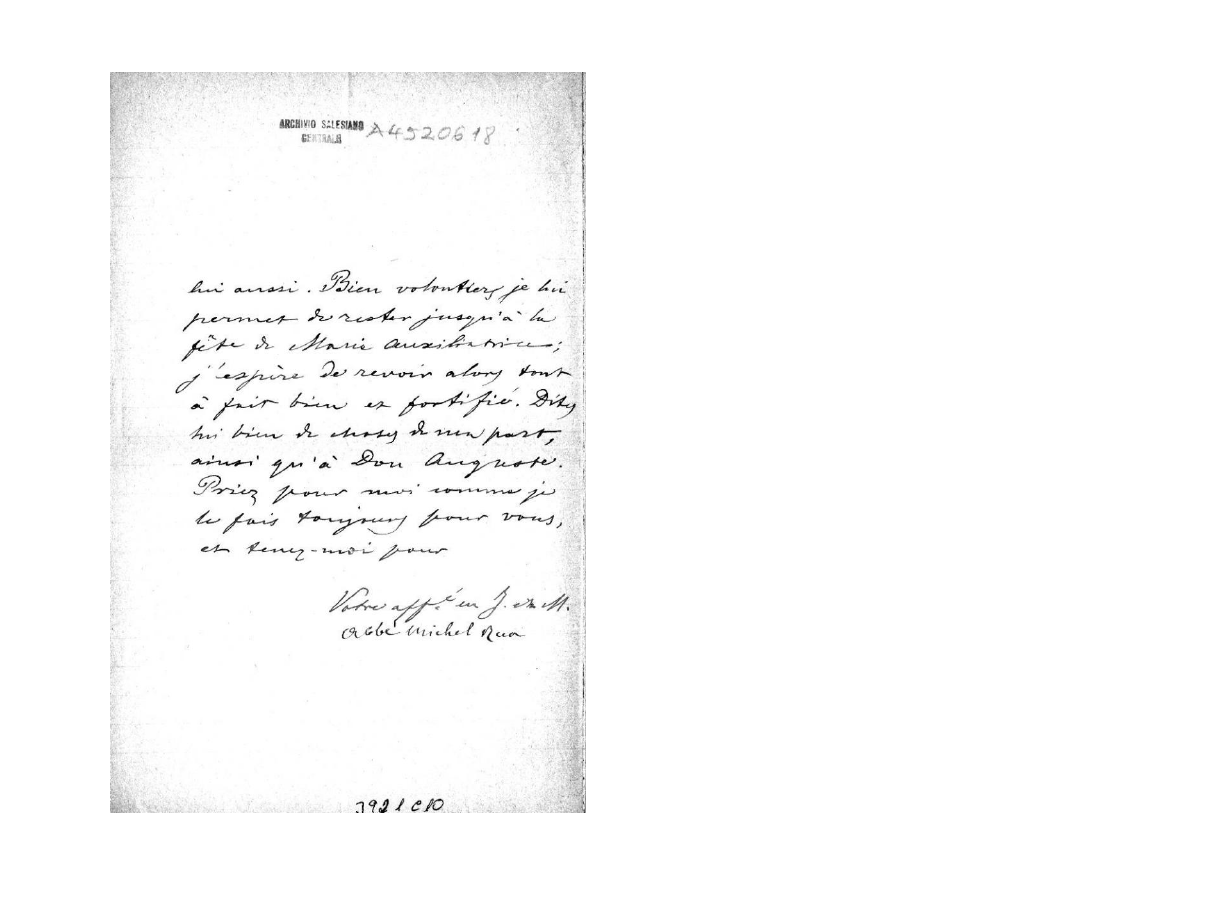 ARCHIVIO SALESIANO A4520618
CENTRALE
lui aussi. Bien volontiers je lui
permet de rester jusqu'à la
fête de Marie Auxiliatrice;
j'espère de revoir alors tout
à fait bien et fortifié. Dites
lui bien de choses de ma part,
ainsi qu'à Don Auguste.
Priez pour moi comme je
le fais toujours pour vous,
et tenez-moi pour
Votre aff.é en J. et M.
Abbé Michel Rua